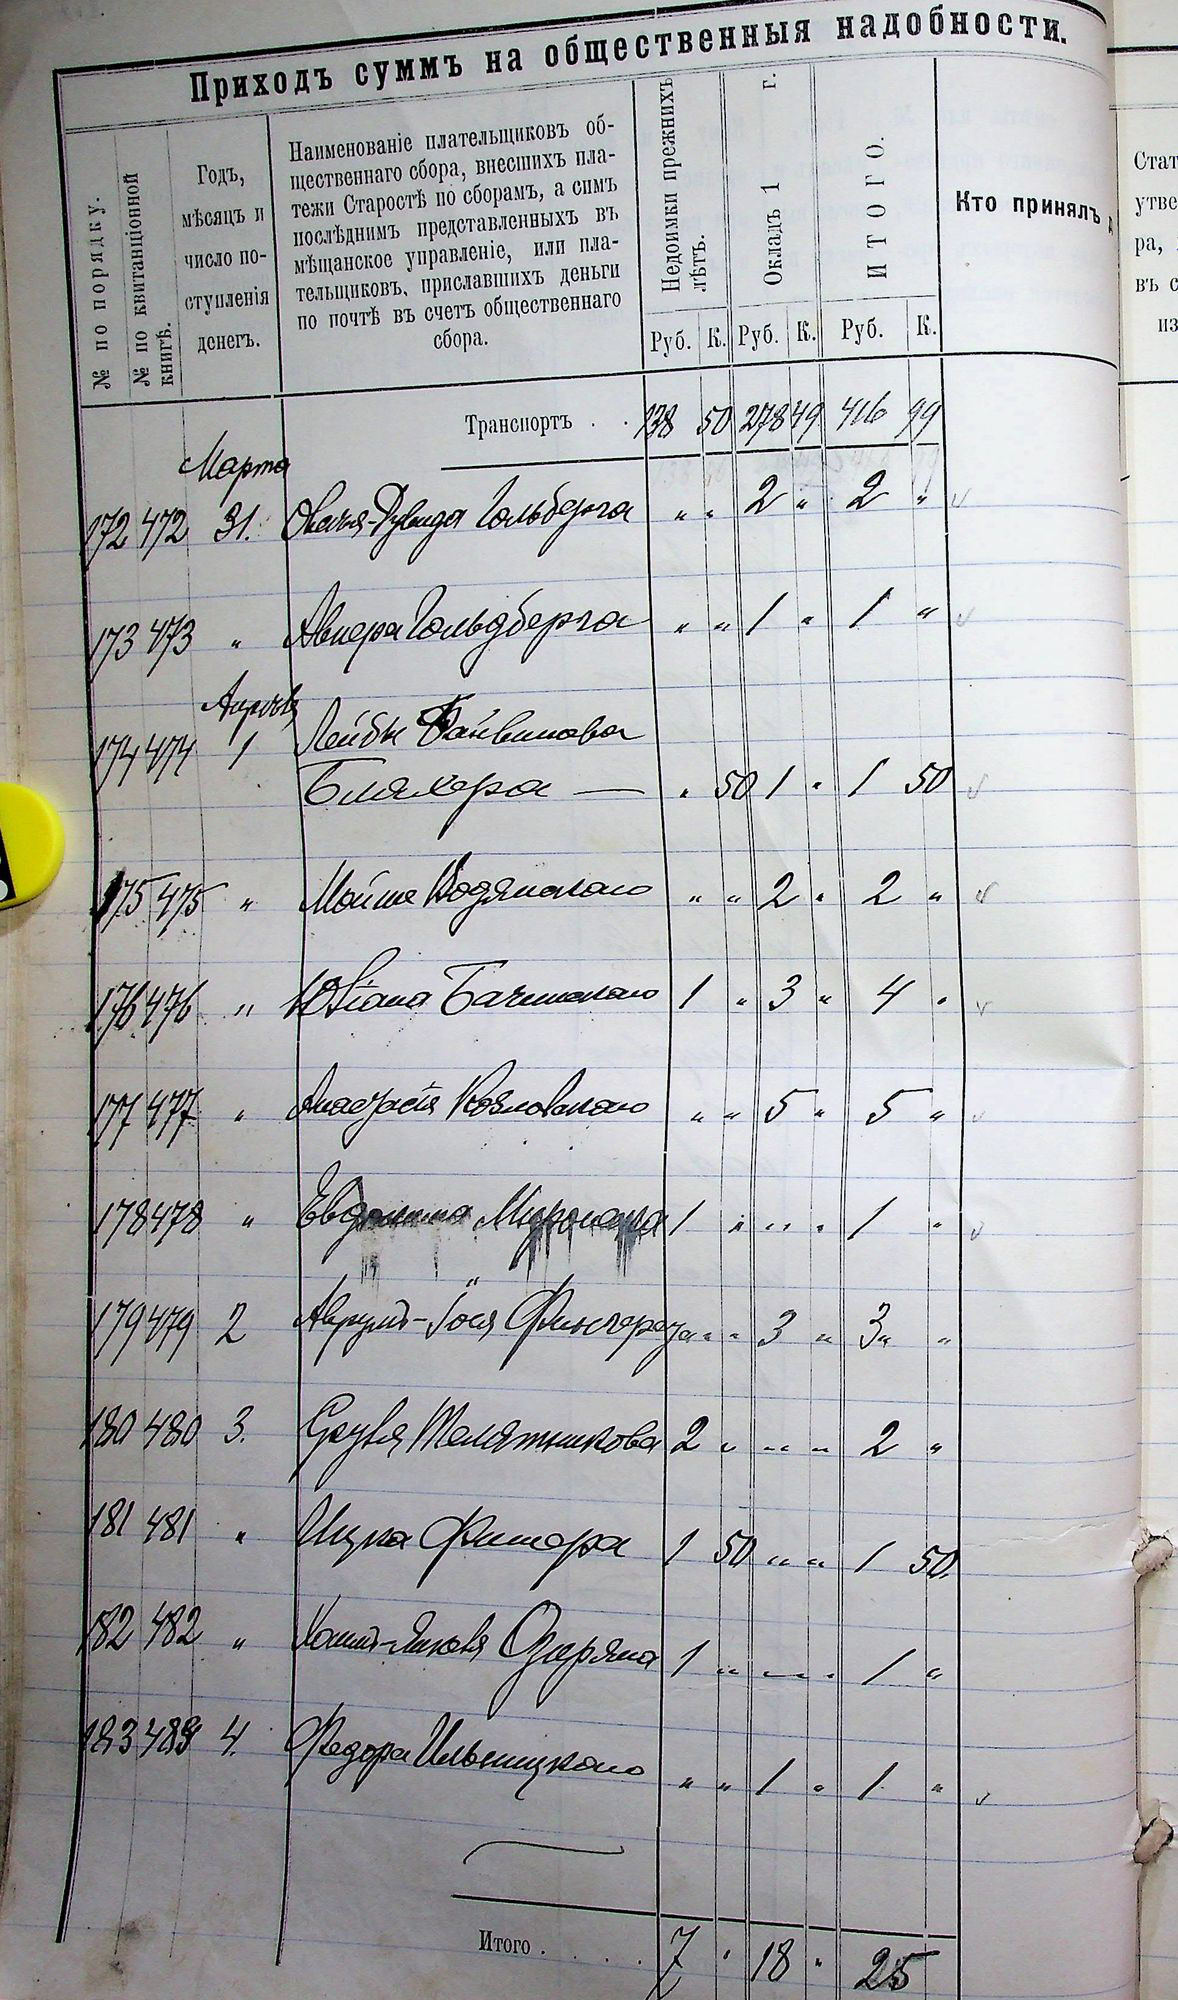 Приходъ суммъ на общественныя надобности.
№ по порядку.
№ по квитанціонной книгѣ.
Годъ,
мѣсяцъ и
число по-
ступленія
денегъ.
Наименованіе плательщиковъ об-
щественнаго сбора, внесшихъ пла-
тежи Старостѣ по сборамъ, а симъ
послѣднимъ представленныхъ въ
мѣщанское управленіе, или пла-
тельщиковъ, приславшихъ деньги
по почтѣ въ счетъ общественнаго
сбора.
Недоимки прежнихъ лѣтъ.
Окладъ 1 г.
ИТОГО.
Руб. К. Руб. К. Руб. К.
Кто принялъ
Стат
утве
ра,
въ с
из
Транспортъ . . 138 50 278 49 416 99
Марта
172 472 31. Гольберга „ „ 2 „ 2 „
173 473 „ Авнера Гольдберга „ „ 1 „ 1 „
Апрѣля
174 474 1 Лейбы Файвишова
Бляхера — „ 50 1 „ 1 50
175 475 „ Мойше Водянскаго „ „ 2 „ 2 „
176 476 „ Бачинскаго 1 „ 3 „ 4 „
177 477 „ Анастасія Козловскаго „ „ 5 „ 5 „
178 478 „ 1 „ „ „ 1 „
179 479 2 Аврумъ-Іося „ „ 3 „ 3 „
180 480 3. Телятникова 2 „ „ „ 2 „
181 481 „ Ицка Фишера 1 50 „ „ 1 50.
182 482 „ Хаимъ-Янкеля 1 „ „ „ 1 „
183 483 4. Федора Ильницкаго „ „ 1 „ 1 „
Итого . . . . . 7 „ 18 „ 25